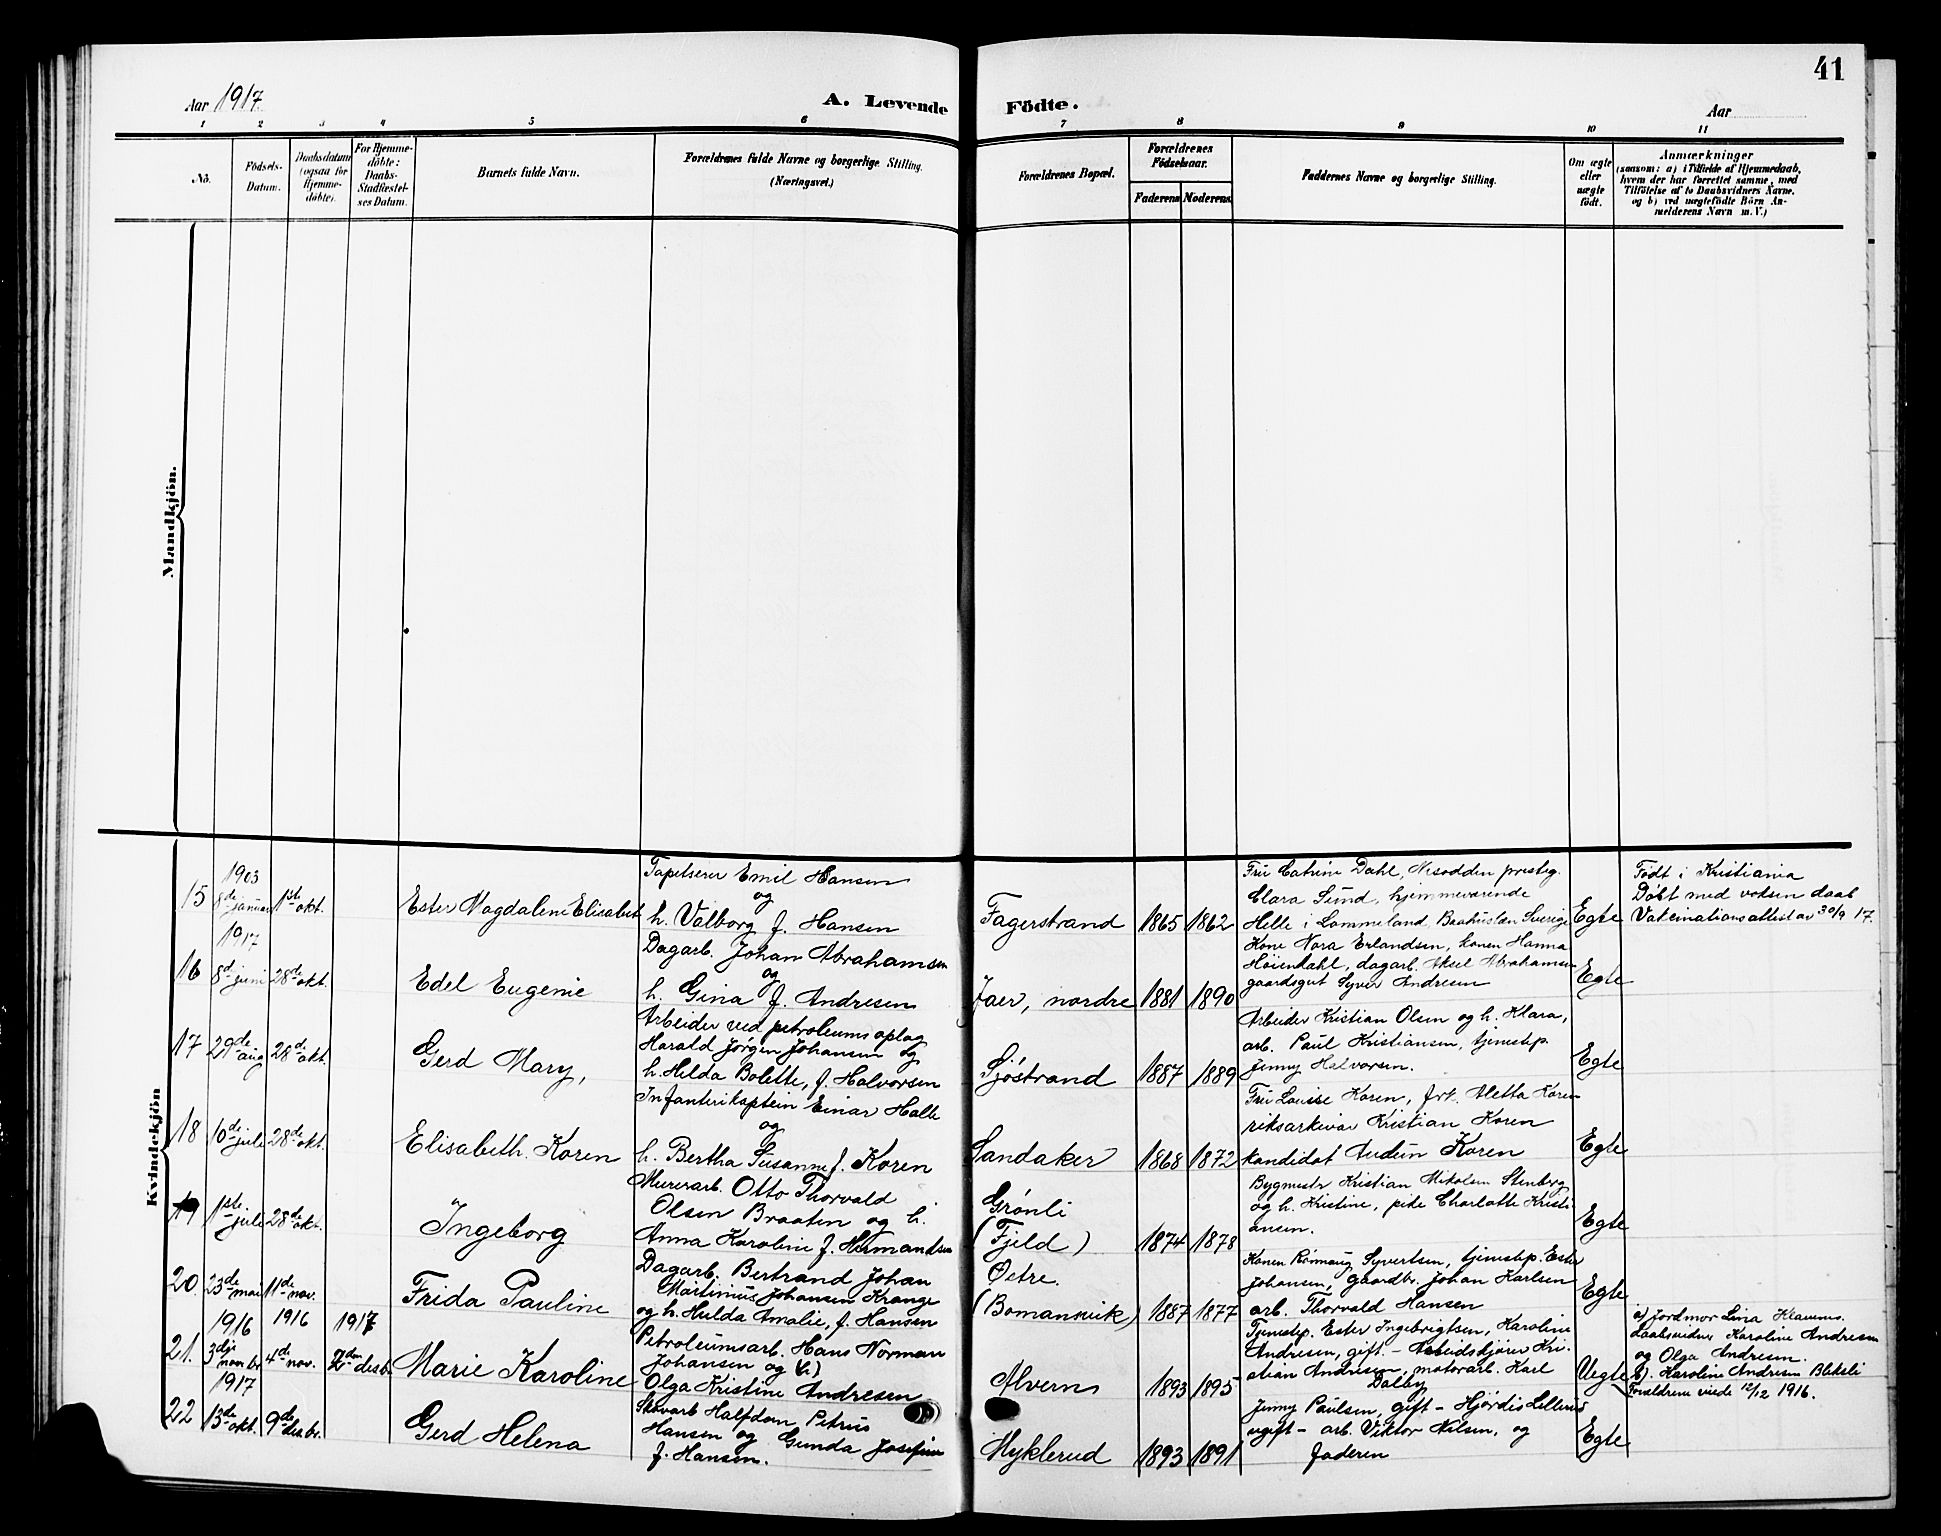 41
Aar 1917.
A. Levende Födte.
Aar
1 2 3 4 5 6 7 8 9 10 11
No.
Födsels-Datum.
Daabsdatum (ogsaa for Hjemmedöbte).
For Hjemmedöbte: Daabs-Stadfæstelses Datum.
Barnets fulde Navn.
Forældrenes fulde Navne og borgerlige Stilling. (Næringsvei.)
Forældrenes Bopæl.
Forældrenes Födselsaar.
Faderens Moderens
Faddernes Navne og borgerlige Stilling.
Om ægte eller uægte födt.
Anmærkninger
(saasom: a) i Tilfælde af Hjemmedaab,
hvem der har forrettet samme, med
Tilföielse af to Daabsvidners Navne,
og b) ved uægtefödte Börn An-
melderens Navn m. V.)
Mandkjön.
Kvindekjön
15 1903 8de januar 1ste okt. Ester Magdalene Elisabet
Tapetserer Emil Hansen
og
h. Valborg f. Hansen
Fagerstrand 1865 1862
Fru Catrine Dahl, Nesodden presteg.
Clara Sund, hjemmeværende
Helle i Lommeland, Baahuslæn Sverige
Egte
Födt i Kristiania
Döbt med voksen daab
Vaccinationsattest av 30/9 17.
16 1917 8de juni 28de okt. Edel Eugenie
Dagarb. Johan Abrahamsen
og
h. Gina f. Andresen
Jaer, nordre 1881 1890
Kone Nora Erlandsen, konen Hanna
Høiendahl, dagarb. Aksel Abrahamsen
gaardsgut Syver Andresen
Egte
17 29de aug 28de okt. Gerd Mary,
Arbeider ved petroleumsoplag
Harald Jørgen Johansen og
h. Hilda Bolette, f. Halvorsen
Sjöstrand 1887 1889
Arbeider Kristian Olsen og h. Klara,
arb. Paul Kristiansen, tjenestep.
Jenny Halvorsen.
Egte
18 10de juli 28de okt. Elisabeth Koren
Infanterikaptein Einar Halle
og
h. Bertha Susanne f. Koren
Sandaker 1868 1872
Fru Louise Koren, frk. Aletta Koren
riksarkivar Kristian Koren
kandidat Audun Koren
Egte
19 1ste juli 28de okt. Ingeborg
Murerarb. Otto Thorvald
Olsen Braaten og h.
Anna Karoline f. Hermandsen
Grönli
(Fjeld) 1874 1878
Bygmestr Kristian Mikolsen Stenberg
og h. Kristine, pike Charlotte Kristi-
ansen.
Egte
20 23de mai 11de nov. Frida Pauline
Dagarb. Bertrand Johan
Martinius Johansen Krange
og h. Hulda Amalie, f. Hansen
Oetre.
(Bomansvik) 1887 1877
Konen Rönnaug Syvertsen, tjenestep. Ester
Johansen, gaardbr. Johan Karlsen
arb. Thorvald Hansen
Egte
21. 1916 3dje novbr 1916 4de nov. 1917 2den desbr. Marie Karoline
Petroleumsarb. Hans Norman
Johansen og
Olga Kristine Andresen
Alvern 1893 1895
Tjenestep. Ester Ingebrigtsen, Karoline
Andresen, gift. - Arbeidskjører Kri-
stian Andresen, motorarb. Karl
Dalby
Uegte
a) Jordmor Lina Klemmes.
daabsvidner Karoline Andresen
og Olga Andresen.
b). Karoline Andresen Blekeli
Foreldrene viede 12/12 1916.
22 1917 13de okt. 9de desbr. Gerd Helena
Skovarb Halfdan Petrus
Hansen og Gunda Josefine
f. Hansen.
Myklerud 1893 1891
Jenny Paulsen, gift - Hjördis
ugift - arb. Viktor Nilsen, og
faderen
Egte